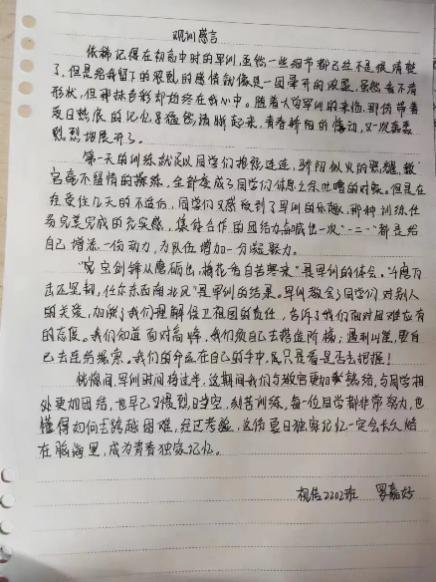 军训感言
依稀记得在初高中时的军训,虽然一些细节都已经不是很清楚
了,但是给我留下的浓烈的感情就像是一团晕开的浓墨,虽然看不清
形状,但那抹色彩却始终在我心中。随着大学军训的来临,那份带着
夏日热浪的记忆又猛然清晰起来,青春骄阳的悸动,又一次轰轰
烈烈地展开了。
第一天的训练就足以同学们抱怨连连,骄阳似火的照耀,教
官毫不留情的操练,全都变成了同学们休息之余吐嘈的对象。但是在
经受住几天的不适后,同学们又感受到了军训的乐趣,那种训练任
务完美完成的充实感,集体合作的团结力与喊出一次“一二一”都是给
自己增添一份动力,为队伍增加一分凝聚力。
“宝剑锋从磨砺出,梅花香自苦寒来”是军训的体会。“千磨万
击还坚韧,任尔东西南北风”是军训的结果。军训教会了同学们对别人
的关爱,加深了我们理解保卫祖国的责任,告诉了我们面对困难应有
的态度。我们知道面对高峰,我们须自己去踏造阶梯;遇到山崖,要自
己去连药绳索。我们的命运在自己的手中,而只是看是否去把握!
恍惚间,军训时间将过半,这期间我们与教官更加熟络,与同学相
处更加团结,也早已习惯烈日当空,刻苦训练,每一位同学都非常努力,也
懂得如何去跨越困难,经过考验,这份夏日独家记忆一定会长久留
在脑海里,成为青春独家记忆。
视传2202班 罗嘉好